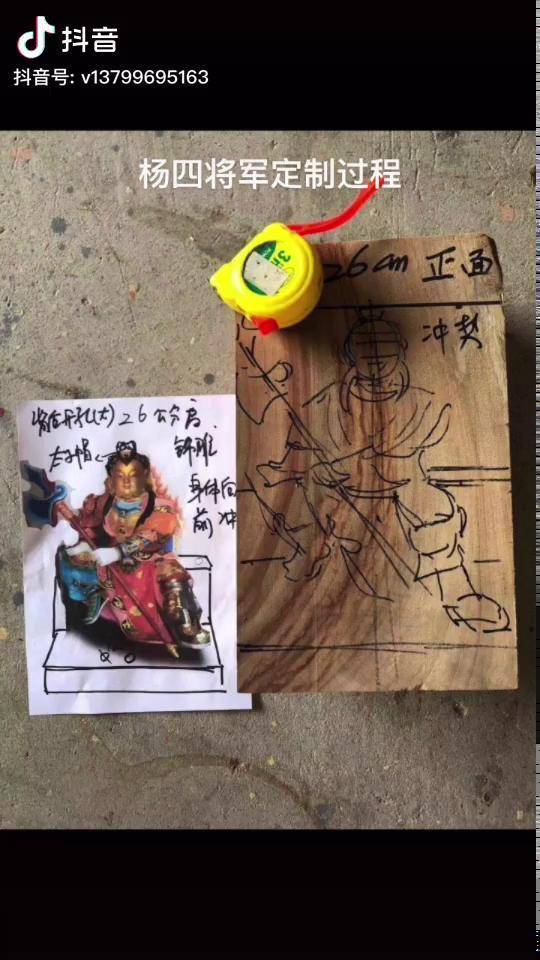 抖音
抖音号: v13799695163
杨四将军定制过程
26cm 正面
冲楚
背后开孔(大) 26公分高.
太子帽
锦雕
身体向
前 冲